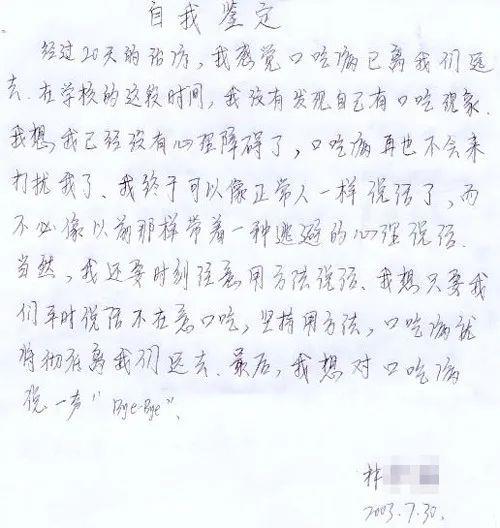 自我鉴定
经过20天的治疗，我感觉口吃病已离我们远
去.在学校的这段时间，我没有发现自己有口吃现象.
我想,我已经没有心理障碍了，口吃病再也不会来
打扰我了、我终于可以像正常人一样说话了，而
不必像以前那样带着一种逃避的心理说话.
当然，我还要时刻注意用方法说话、我想只要我
们平时说话不在意口吃，坚持用方法，口吃病就
将彻底离我们远去.最后，我想对口吃病
说一声“Bye-Bye”、
林
2003.7.30.